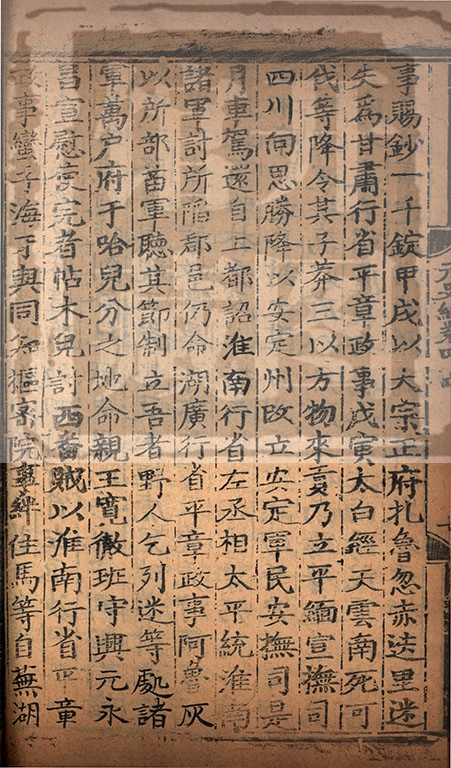 事賜鈔一千錠甲戌以大宗正府札魯忽赤迭里迷
失爲甘肅行省平章政事戊寅太白經天雲南死可
伐等降令其子莽三以方物來貢乃立平緬宣撫司
四川向思勝降以安定州改立安定軍民安撫司是
月車駕還自上都詔淮南行省左丞相太平統淮南
諸軍討所陷郡邑仍命湖廣行省平章政事阿魯灰
以所部苗軍聽其節制立吾者野人乞列迷等處諸
軍萬户府于哈兒分之地命親王寬徹班守興元永
昌宣慰使完者帖木兒討西番賊以淮南行省平章
政事蠻子海牙與同知樞密院事絆住馬等自蕪湖
元史紀卷四四